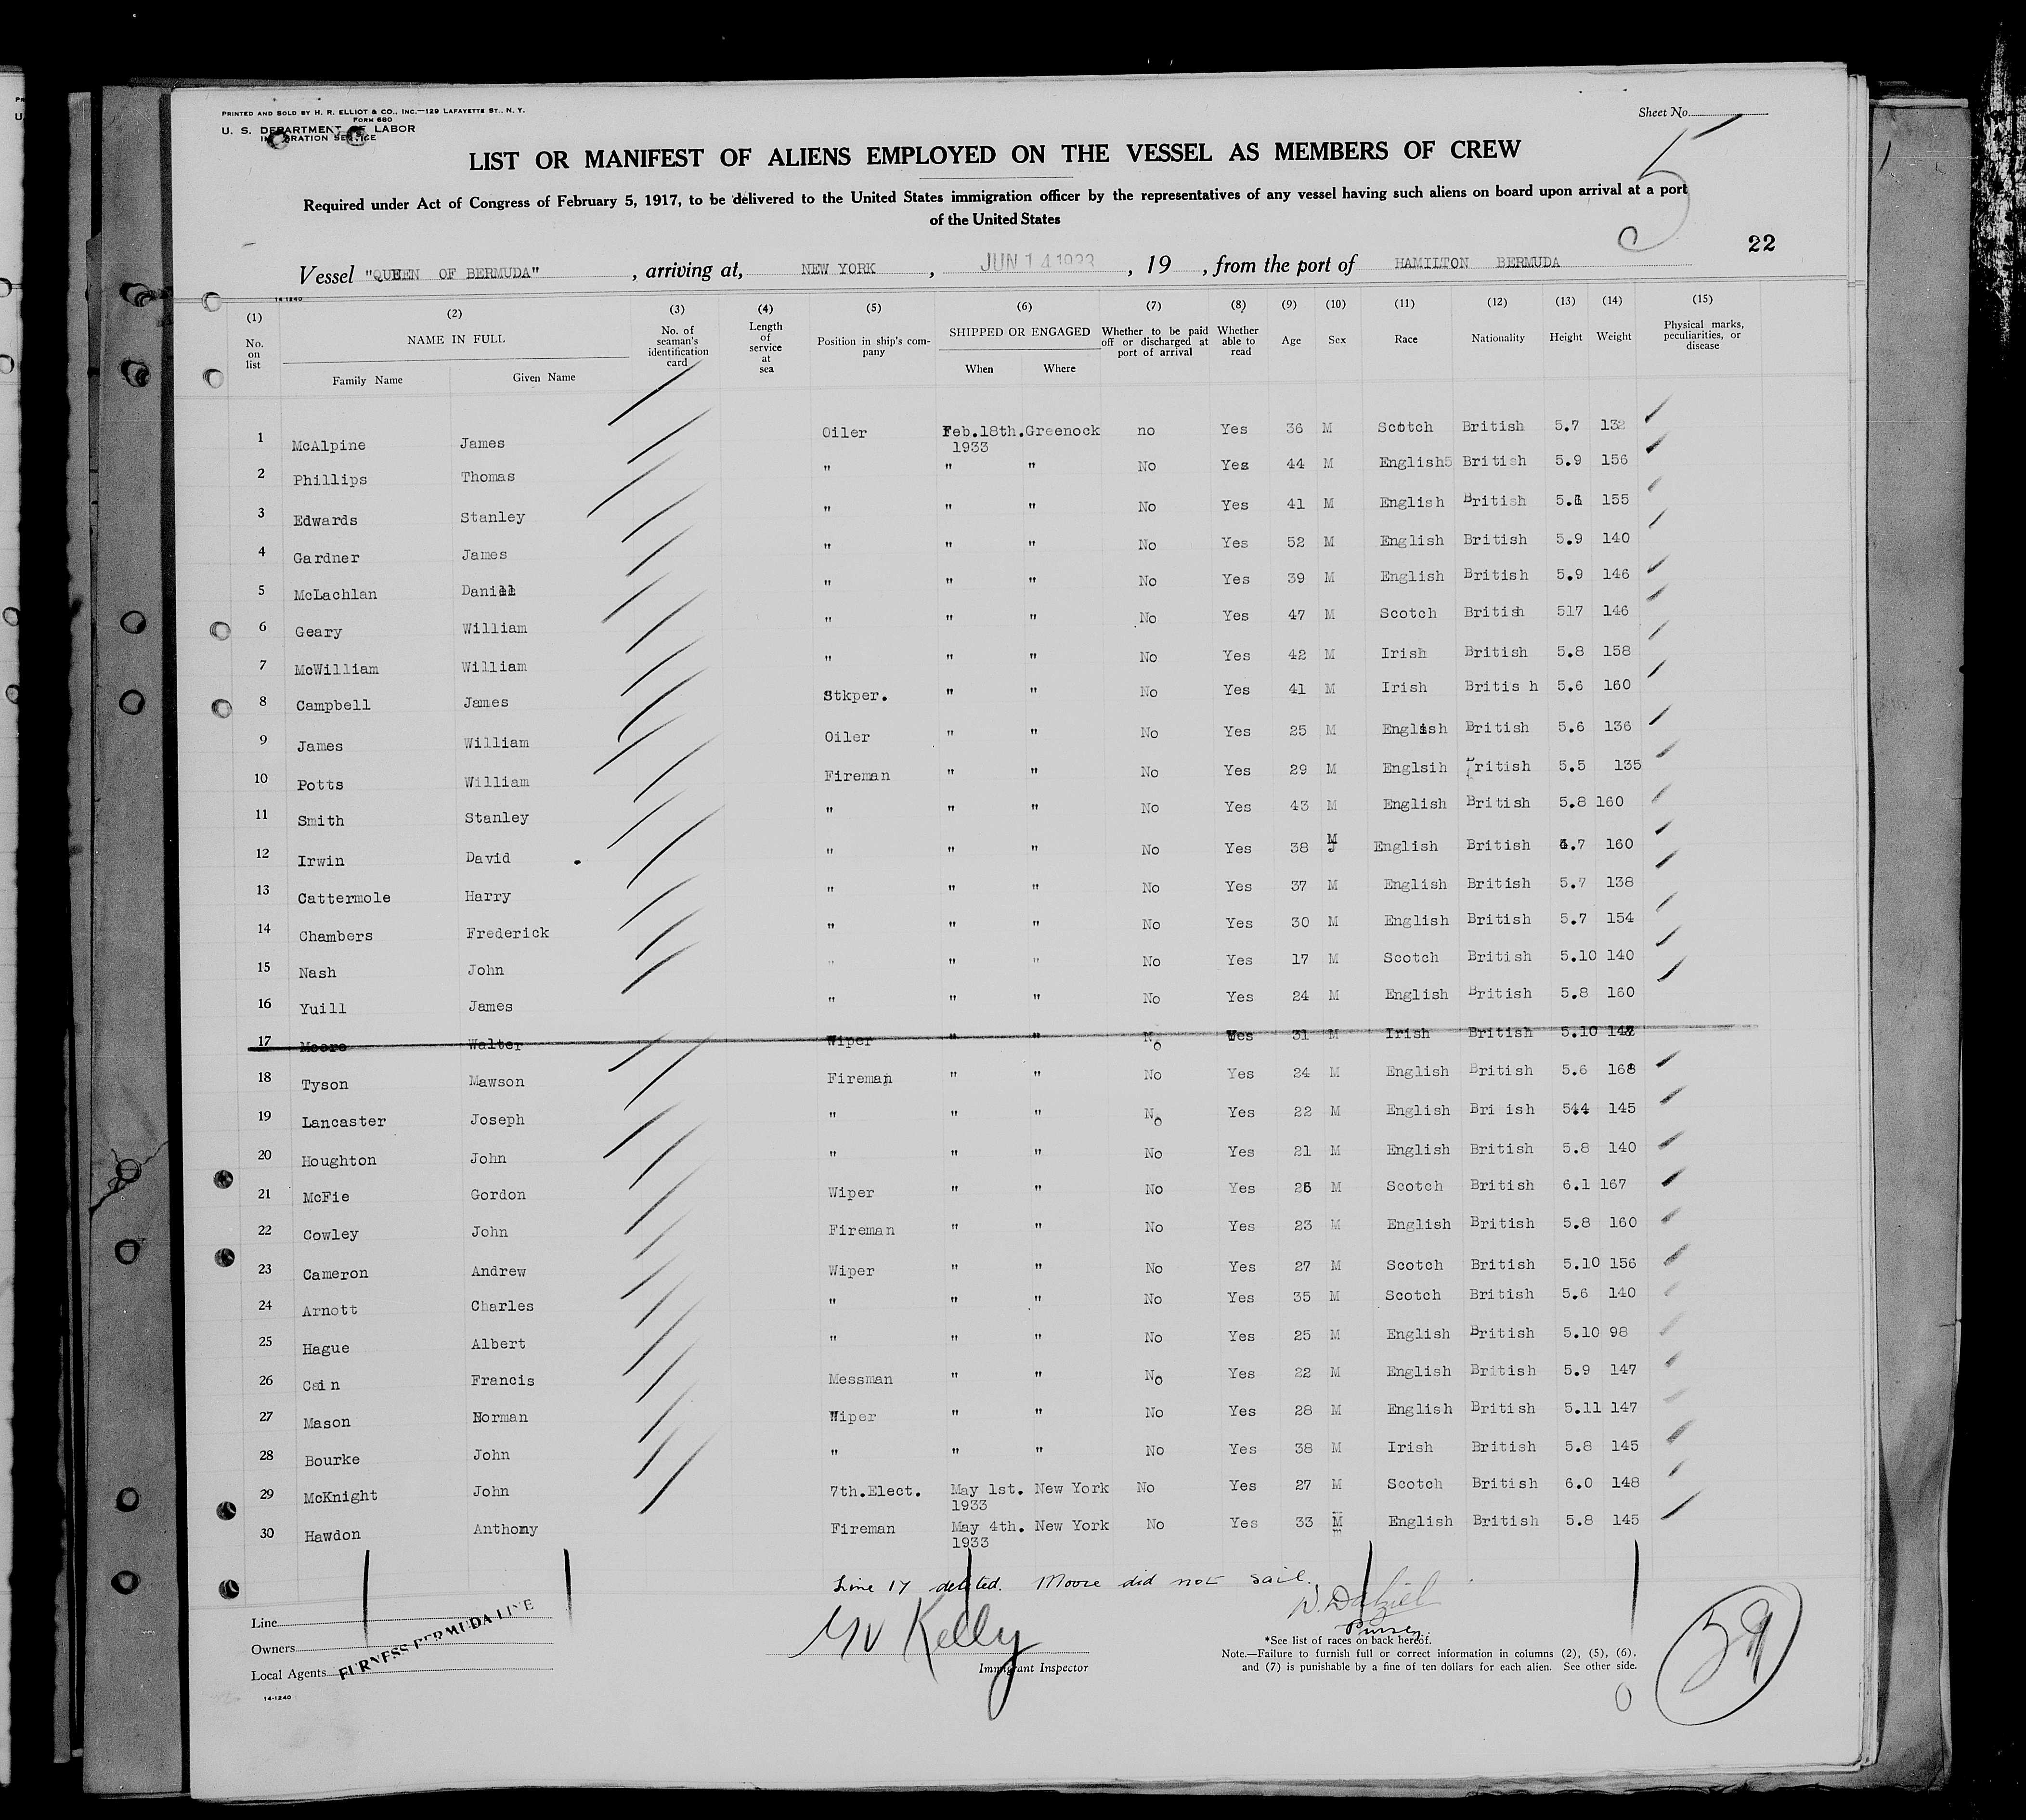 PRINTED AND SOLD BY H. R. ELLIOT & CO., INC.—129 LAFAYETTE ST., N. Y.
FORM 680
U. S. DEPARTMENT OF LABOR
IMMIGRATION SERVICE
Sheet No.
5
LIST OR MANIFEST OF ALIENS EMPLOYED ON THE VESSEL AS MEMBERS OF CREW
Required under Act of Congress of February 5, 1917, to be delivered to the United States immigration officer by the representatives of any vessel having such aliens on board upon arrival at a port
of the United States
22
Vessel "QUEEN OF BERMUDA" , arriving at, NEW YORK , JUN 14 1933 , 19 , from the port of HAMILTON BERMUDA
14-1240
(1) (2) (3) (4) (5) (6) (7) (8) (9) (10) (11) (12) (13) (14) (15)
No. on list NAME IN FULL Family Name Given Name No. of seaman's identification card Length of service at sea Position in ship's company SHIPPED OR ENGAGED When Where Whether to be paid off or discharged at port of arrival Whether able to read Age Sex Race Nationality Height Weight Physical marks, peculiarities, or disease
1 McAlpine James Oiler Feb.18th. 1933 Greenock no Yes 36 M Scotch British 5.7 132
2 Phillips Thomas " " " No Yes 44 M English5 British 5.9 156
3 Edwards Stanley " " " No Yes 41 M English British 5. 155
4 Gardner James " " " No Yes 52 M English British 5.9 140
5 McLachlan Daniel " " " No Yes 39 M English British 5.9 146
6 Geary William " " " No Yes 47 M Scotch British 517 146
7 McWilliam William " " " No Yes 42 M Irish British 5.8 158
8 Campbell James Stkper. " " No Yes 41 M Irish Britis h 5.6 160
9 James William Oiler " " No Yes 25 M English British 5.6 136
10 Potts William Fireman " " No Yes 29 M Englsih British 5.5 135
11 Smith Stanley " " " No Yes 43 M English British 5.8 160
12 Irwin David " " " No Yes 38 M English British 5.7 160
13 Cattermole Harry " " " No Yes 37 M English British 5.7 138
14 Chambers Frederick " " " No Yes 30 M English British 5.7 154
15 Nash John " " " No Yes 17 M Scotch British 5.10 140
16 Yuill James " " " No Yes 24 M English British 5.8 160
17 Moore Walter Wiper " " No Yes 31 M Irish British 5.10 142
18 Tyson Mawson Fireman " " No Yes 24 M English British 5.6 168
19 Lancaster Joseph " " " No Yes 22 M English Bri ish 544 145
20 Houghton John " " " No Yes 21 M English British 5.8 140
21 McFie Gordon Wiper " " No Yes 26 M Scotch British 6.1 167
22 Cowley John Fireman " " No Yes 23 M English British 5.8 160
23 Cameron Andrew Wiper " " No Yes 27 M Scotch British 5.10 156
24 Arnott Charles " " " No Yes 35 M Scotch British 5.6 140
25 Hague Albert " " " No Yes 25 M English British 5.10 98
26 Cain Francis Messman " " No Yes 22 M English British 5.9 147
27 Mason Norman Wiper " " No Yes 28 M English British 5.11 147
28 Bourke John " " " No Yes 38 M Irish British 5.8 145
29 McKnight John 7th.Elect. May 1st. 1933 New York No Yes 27 M Scotch British 6.0 148
30 Hawdon Anthony Fireman May 4th. 1933 New York No Yes 33 M English British 5.8 145
Line 17 deleted. Moore did not sail.
Purser
Line
Owners
Local Agents FURNESS BERMUDA LINE
14-1240
Kelly
Immigrant Inspector
*See list of races on back hereof.
Note.—Failure to furnish full or correct information in columns (2), (5), (6),
and (7) is punishable by a fine of ten dollars for each alien. See other side.
0